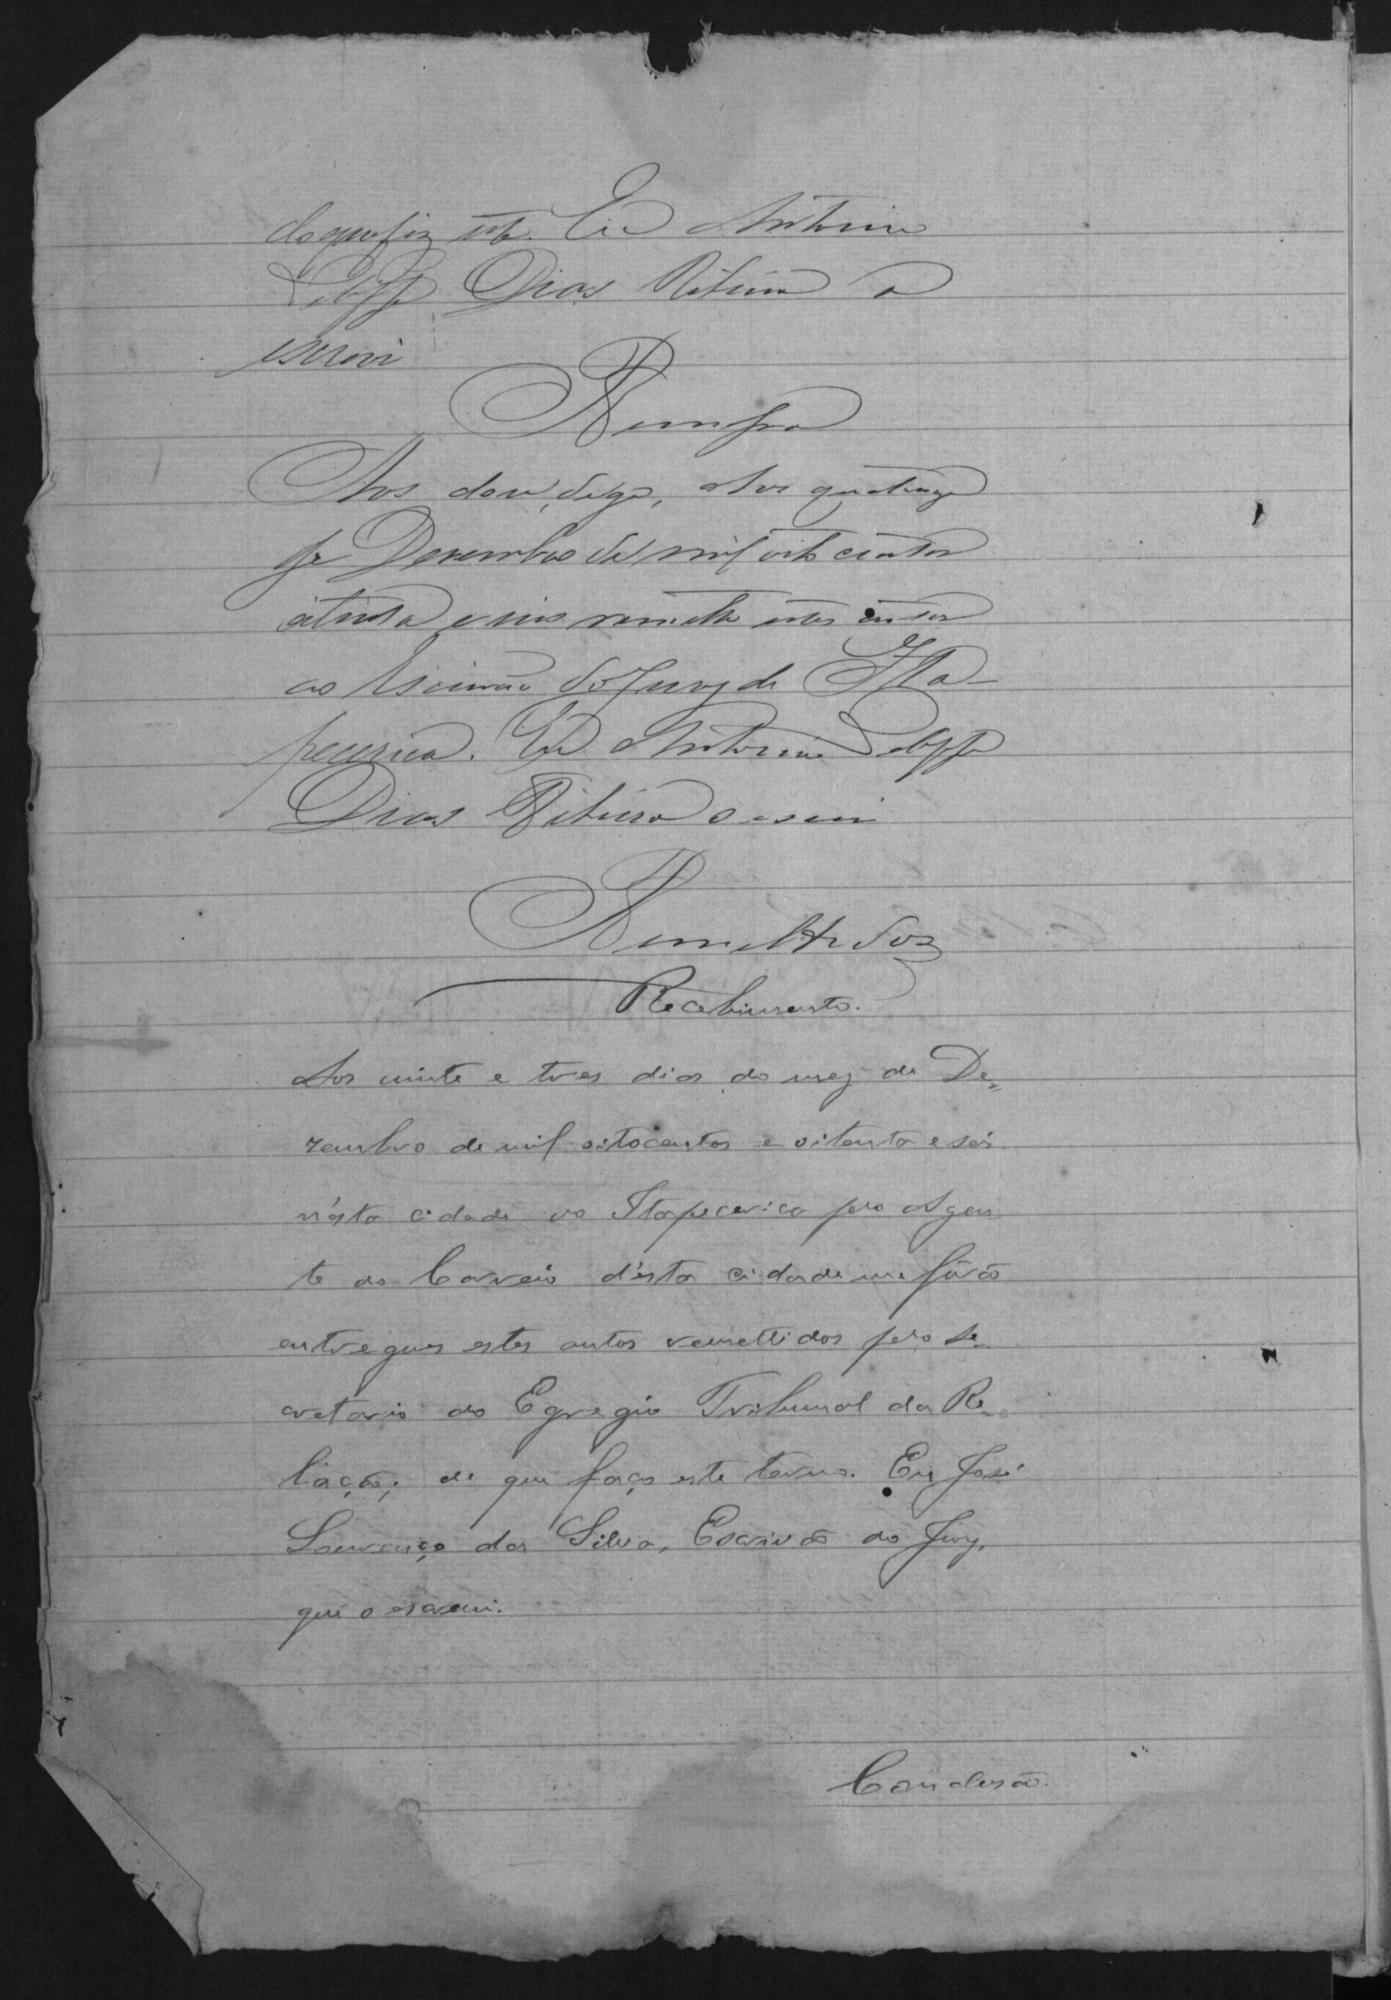 do que fiz este. Eu Antonio
Dias Ribeiro o
escrevi
Remessa
Aos doze, digo, Aos quatorze
de Dezembro de mil oito centos
oitenta e seis remetto estes autos
ao Escrivão do Jury de Ita-
pecerica. Eu Antonio
Dias Ribeiro o escrevi
Remettidos
Recebimento.
Aos vinte e tres dias do mez de De-
zembro de mil oitocentos e oitenta e seis
n'esta cidade do Itapecerica pelo Agen
te do Correio d'esta cidade me fôrão
entregues estes autos remettidos pelo Se-
cretario do Egregio Tribunal da Re-
lação; de que faço este termo. Eu José
Lourenço da Silva, Escrivão do Jury,
que o escrevi.
Conclusão.